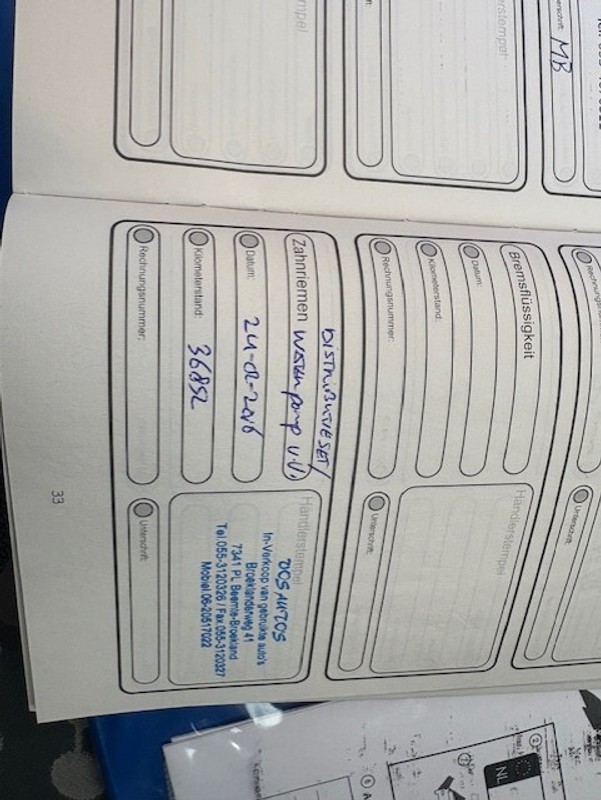 MB
Händlerstempel
Bremsflüssigkeit
Datum:
Kilometerstand:
Rechnungsnummer:
Händlerstempel
Unterschrift:
DISTRIBUTIE SET/
Zahnriemen Waterpomp V.V.
Datum: 24-02-2016
Kilometerstand: 36852
Rechnungsnummer:
Händlerstempel
DOS AUTOS
In-Verkoop van gebruikte auto's
Broeklanderweg 41
7341 PL Beemte-Broekland
Tel.055-3120326 / Fax 055-3120327
Mobiel.06-20517022
Unterschrift:
33
NL